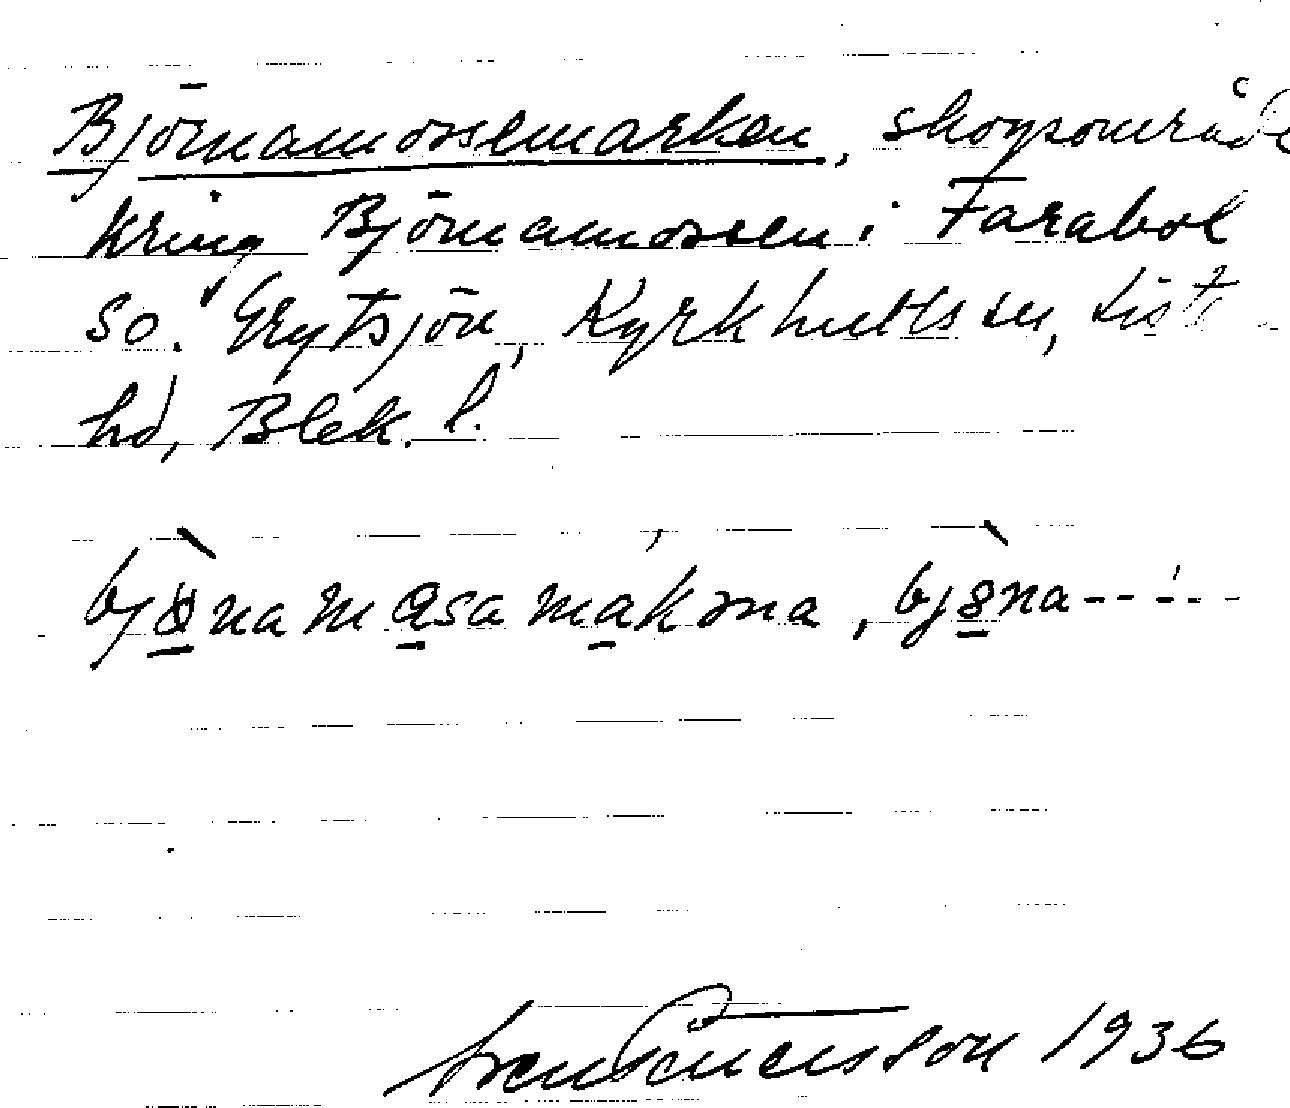 Björnamossemarken, skogsområde
kring Björnamossen i Farabol
so. Grytsjön, Kyrkhults sn, List
hd, Blek. l.
bjönamåsamakəna, bjöna-----
Sven Benson 1936